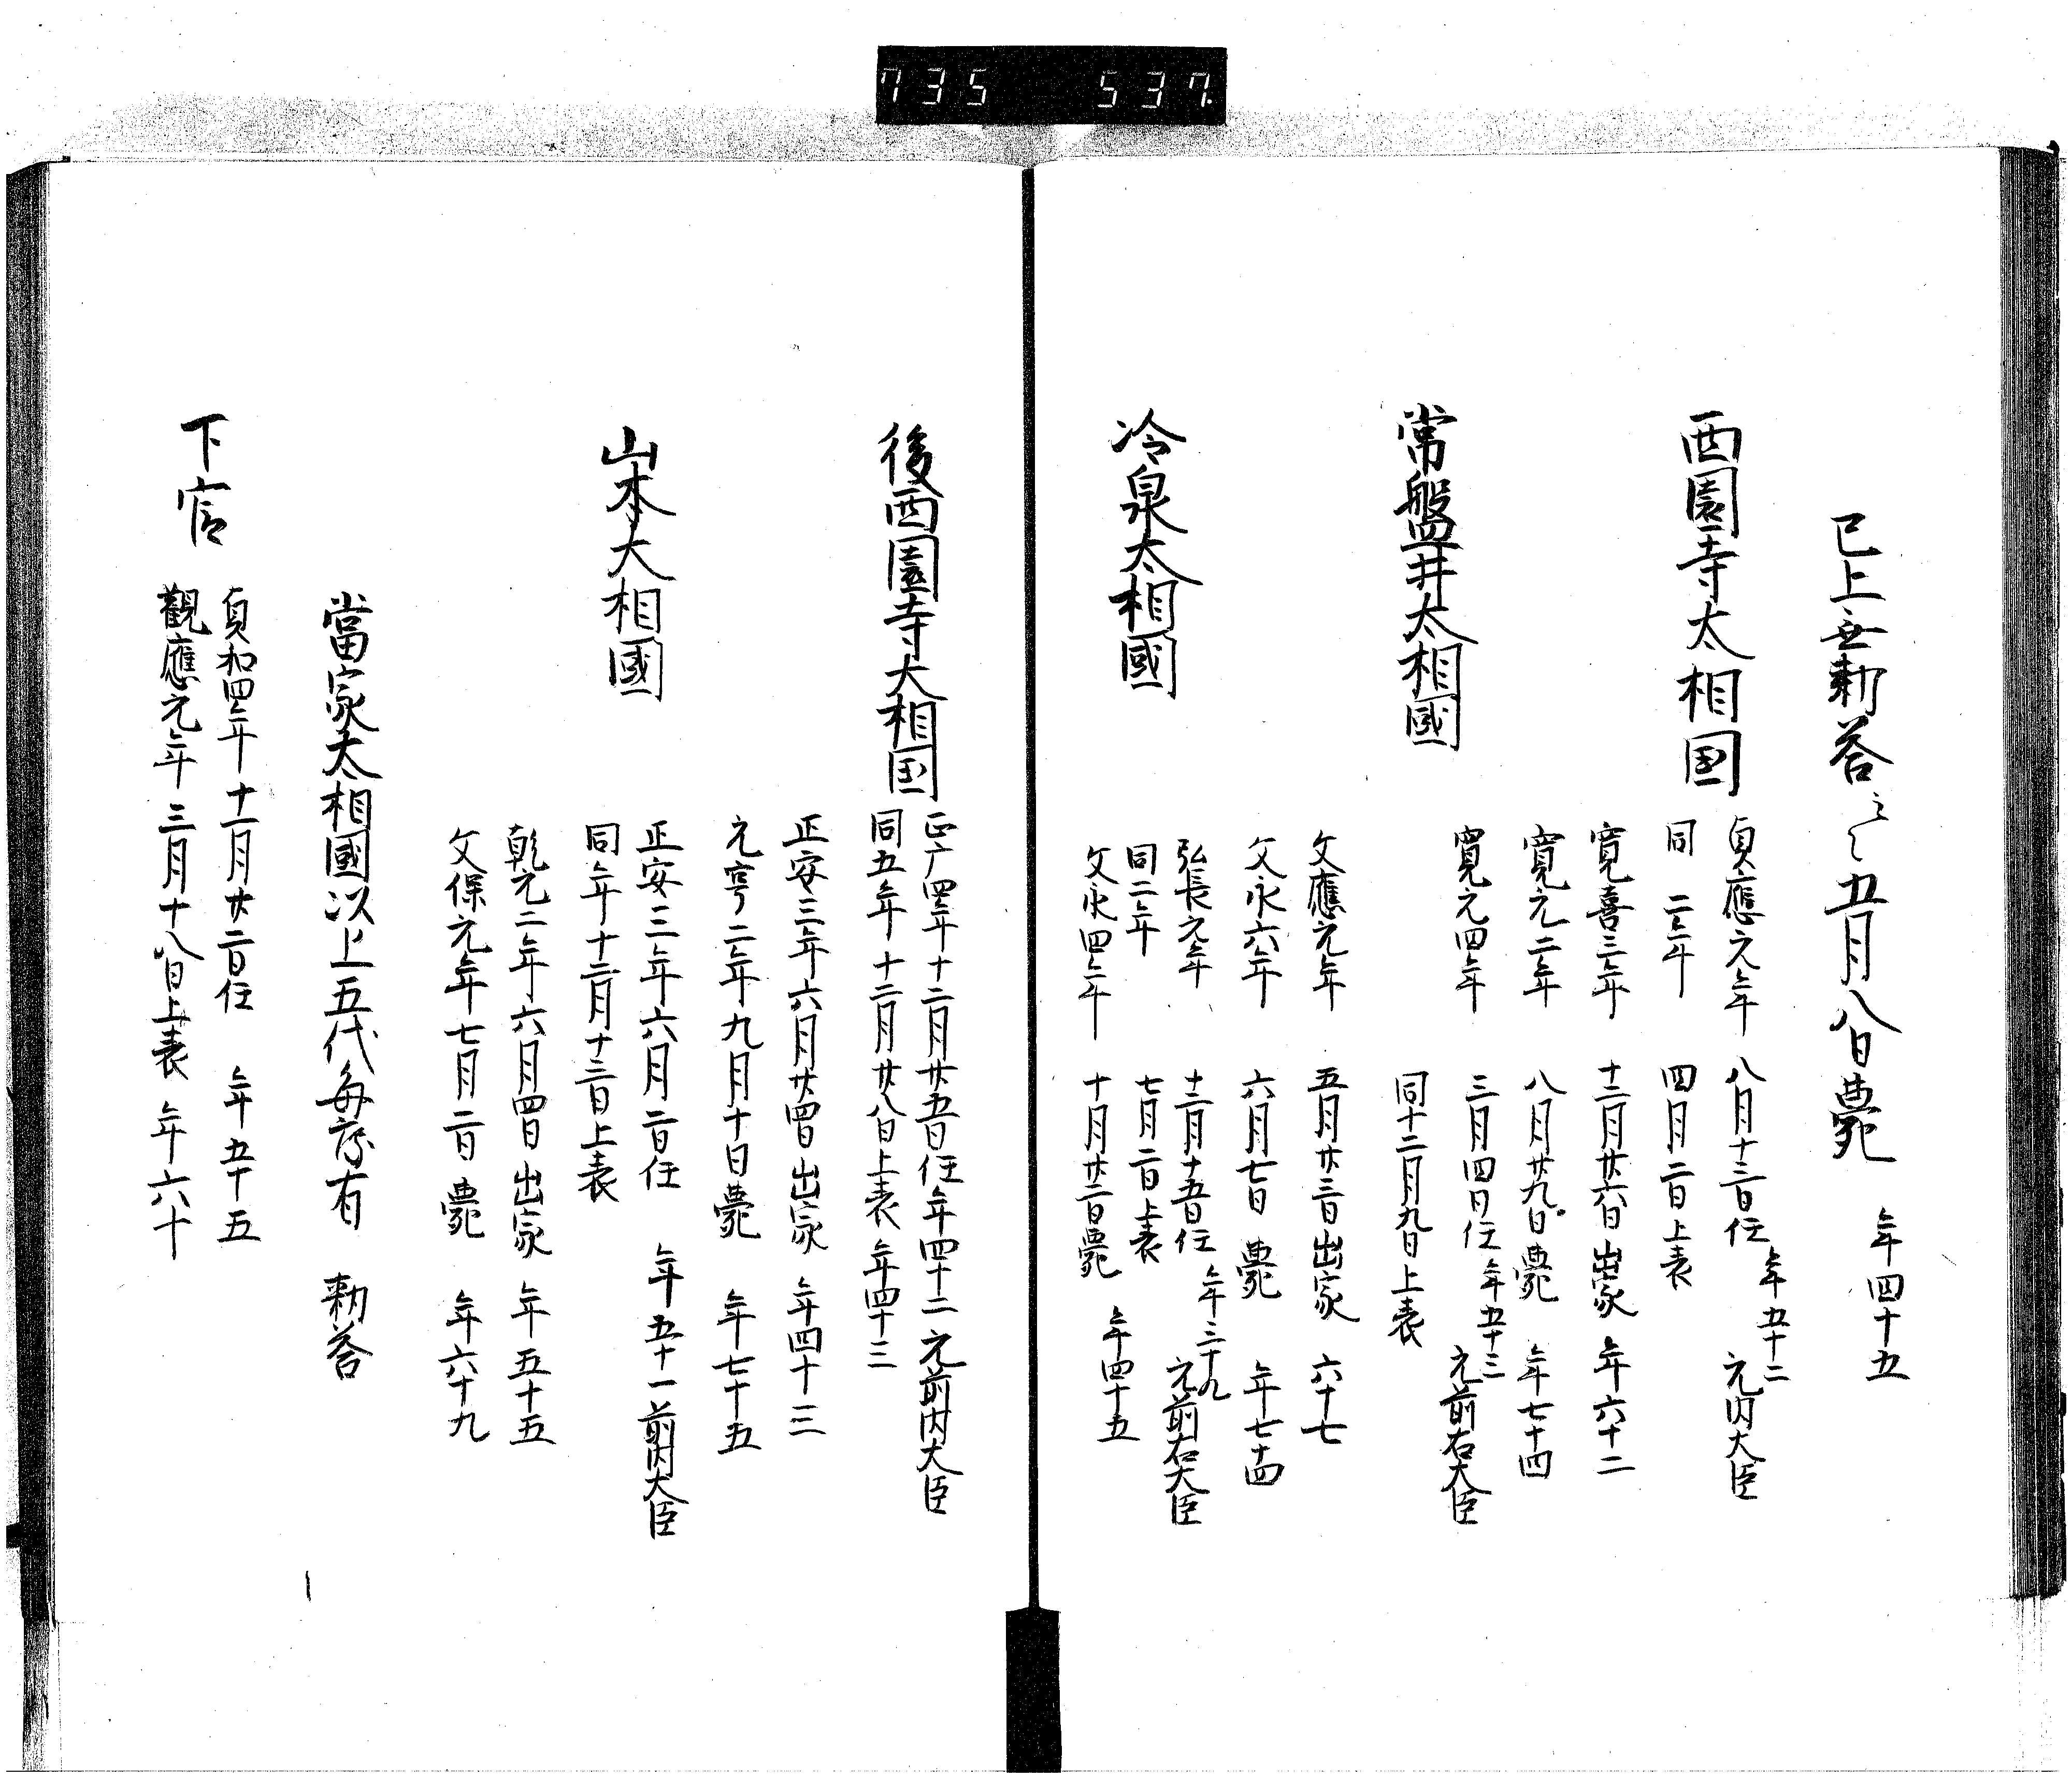 735 537
已上無勅答云〻五月八日薨 年四十五
西園寺太相国
貞應元年 八月十三日任 年五十二 元内大臣
同 二年 四月二日上表
寛喜三年 十二月廿六日出家 年六十二
寛元二年 八月廿九日薨 年七十四
常盤井太相國
寛元四年 三月四日任 年五十三 元前右大臣
同十二月九日上表
文應元年 五月廿三日出家 六十七
文永六年 六月七日薨 年七十四
冷泉太相國
弘長元年 十二月十五日任 年三十九 元前右大臣
同二年 七月二日上表
文永四年 十月廿二日薨 年四十五
後西園寺大相国
正广四年十二月廿五日任年四十二 元前内大臣
同五年十二月廿八日上表年四十三
正安三年六月廿四日出家 年四十三
元亨二年九月十日薨 年七十五
山本大相國
正安三年六月二日任 年五十一前内大臣
同年十二月十二日上表
乾元二年六月四日出家 年五十五
文保元年七月二日薨 年六十九
當家太相國以上五代每度有 勅答
下官
貞和四年十一月廿二日任 年五十五
觀應元年三月十八日上表 年六十